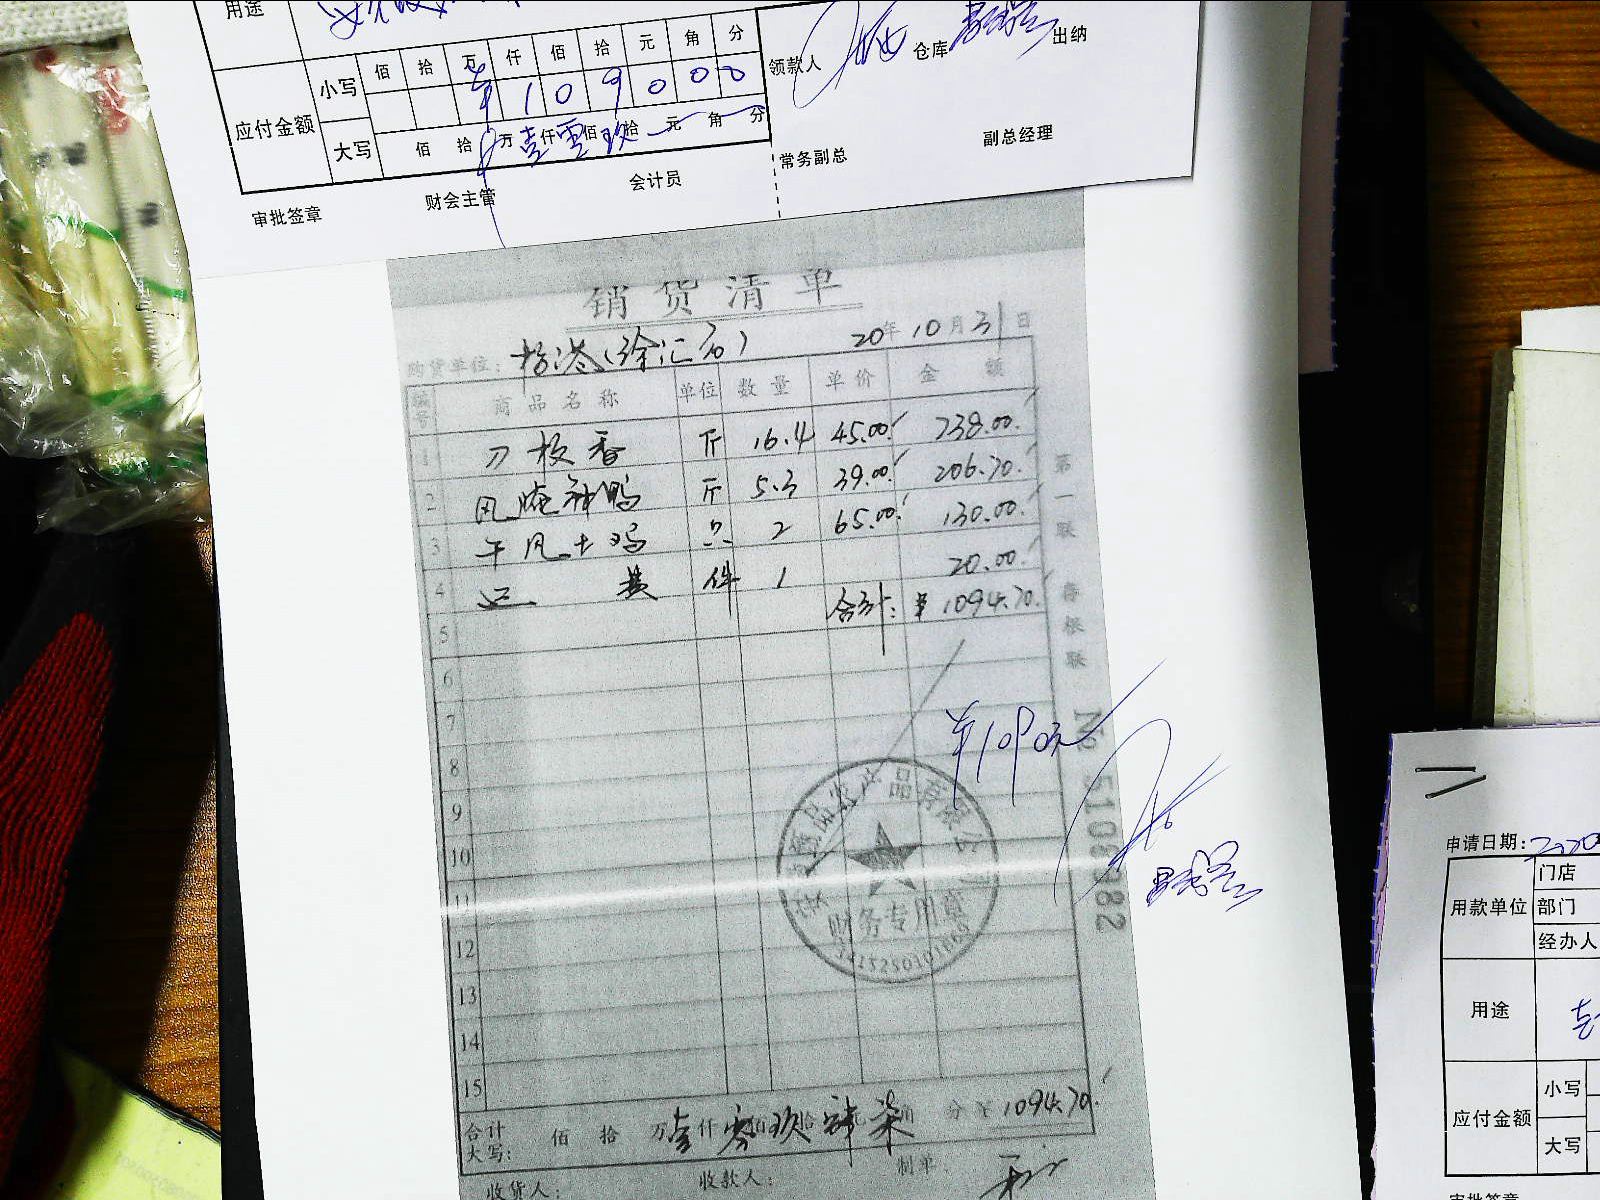 用途
应付金额 小写 佰 拾 万 仟 佰 拾 元 角 分
¥ 1 0 9 0 0 0
大写 佰 拾 万 壹 仟 零 佰 玖 拾 元 角 分
审批签章 财会主管 会计员
领款人 仓库 出纳
常务副总 副总经理
销货清单
购货单位: (徐汇店) 20 年 10 月 31 日
编号 商品名称 单位 数量 单价 金额
1 刀板香 斤 16.4 45.00 738.00
2 风腌神鸭 斤 5.3 39.00 206.70
3 干风土鸡 只 2 65.00 130.00
4 运 费 件 1 20.00
5 合计: ¥1094.70
6
7
8
9
10
11
12
13
14
15
合计大写: 佰 拾 万 壹 仟 零 佰 玖 拾 肆 柒 分 ¥ 1094.70
收货人: 收款人: 制单
第一联 存根联
¥1090元
财务专用章
申请日期: 2020
用款单位 门店
部门
经办人
用途
应付金额 小写
大写
审批签章